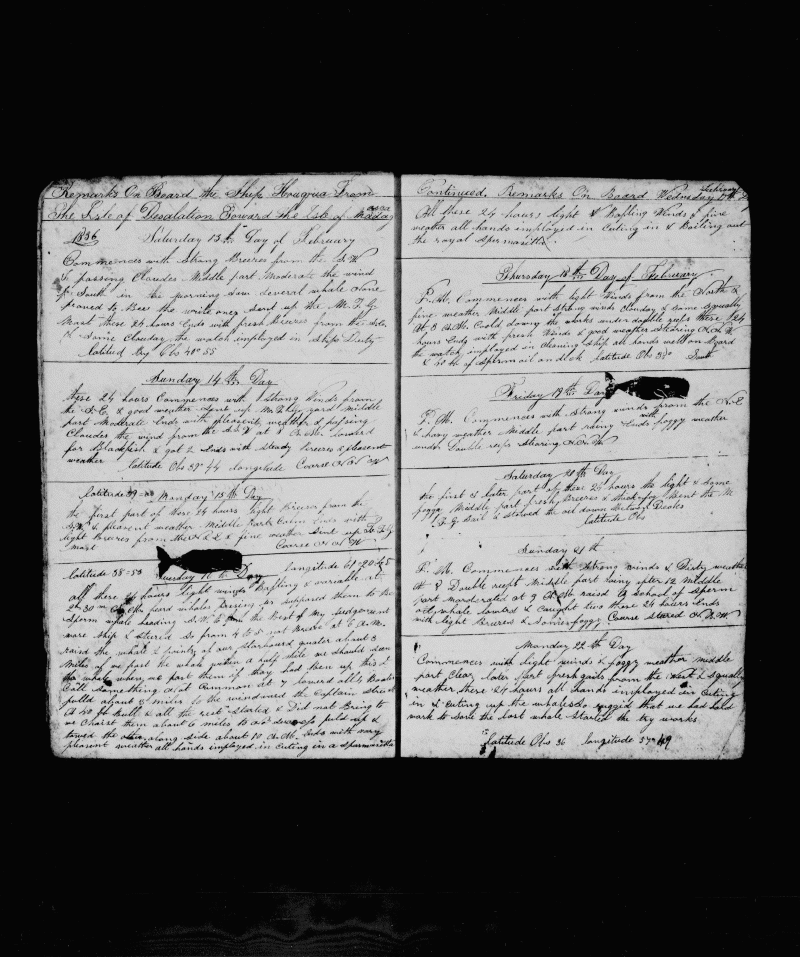 Remarks On Board the Ship Houqua From
The Isle of Desolation Toward the Isle of Madagasca
1836 Saturday 13th Day of February
Commences with Strong Breezes from the S. W
& passing Cloudes Middle part Moderate the wind
South in the morning Saw several whale None
proved to Bee the write ones Send up the T. G.
Mast these 24 hours Ends with fresh Breezes from the
& Some Cloudey the watch employed in Ships Duty
Latitud By Obs 40° 55
Sunday 14th Day
these 24 hours Commences with Strong Winds from
the & good weather Sent up yard middle
part Moderate Ends with pleasent weather & passing
Cloudes the wind from the at A. M. lowerd
for Blackfish & got 2 Ends with Steady Breezes & pleasent
weather latitude Obs 39° 44 longitude Coarse
latitude 39 Monday 15th Day
the first part of these 24 hours light Breezes from the
& pleasent weather Middle Part Calm Ends with
light Breezes from the & fine weather Sent up
mast Coarse
latitude 38-53 Tuesday 16th Day longitude 61-20-45
all these 24 hours light winds Bafling & variable at
30 m whales supposed them to Be
Sperm whale heading the Best of my judgement
more Ship & stered So from 4 to 5 not A. M.
raisd the whale 2 points of our Starboard quater about 3
Miles of we past the whale within a half mile we should seen
the whale when we past them if they had been up this I
Call something a out Common at 7 lowerd all Boates
pulld about 2 miles to the windward the Captain struck
a 40 Bull & all the rest Starte & Did not Bring to
we Chast them about 6 miles puld up &
towed the along side about 10 A. M. Ends with vary
pleasent weather all hands imployed in Cuting in a Spermwhale
Continued Remarks On Board Wednesday 17th February
All these 24 hours light & Bafling Winds & fine
weather all hands employed in Cuting in & Boiling out
the royal Sperm
Thursday 18th Day of February
P. M. Commences with light Winds from the North &
fine weather Middle part Strong winds Cloudey & Some Squally
At 8 A. M. Coold down the works under double reefs these 24
hours Ends with fresh Winds & good weather Stearing
the watch imployed in Cleaning Ship all hands well on Board
& 40 bb of Spermoil on deck latitude Obs 38° South
Friday 19th Day
P. M. Commences with Strong winds from the N. E
& havy weather Middle part rainy Ends with foggy weather
under Double reefs Stearing
Saturday 20th Day
the first & later part of these 24 hours the light & Some
foggy Middle part fresh Breezes & thick fog Bent the M
T. G Sail & Stowed the oil down between Deckes
latitude Obs
Sunday 21th
P. M. Commences with Strong winds & Dirty weather
at 8 Double reeft Middle part rainy after 12 Middle
part mordorated at 9 A. M. raisd a School of Sperm
whale lowerd & Caught two these 24 hours Ends
with light Breezes & Some foggy Coarse Stered
Monday 22th Day
Commences with light winds & foggy weather middle
part Clear later part fresh gails from the West & Squally
weather these 24 hours all hands imployed in Cuting
in & Cuting up the whales So rugged that we had hard
work to Save the last whale Started the try works
latitude Obs 36 longitude 57-49